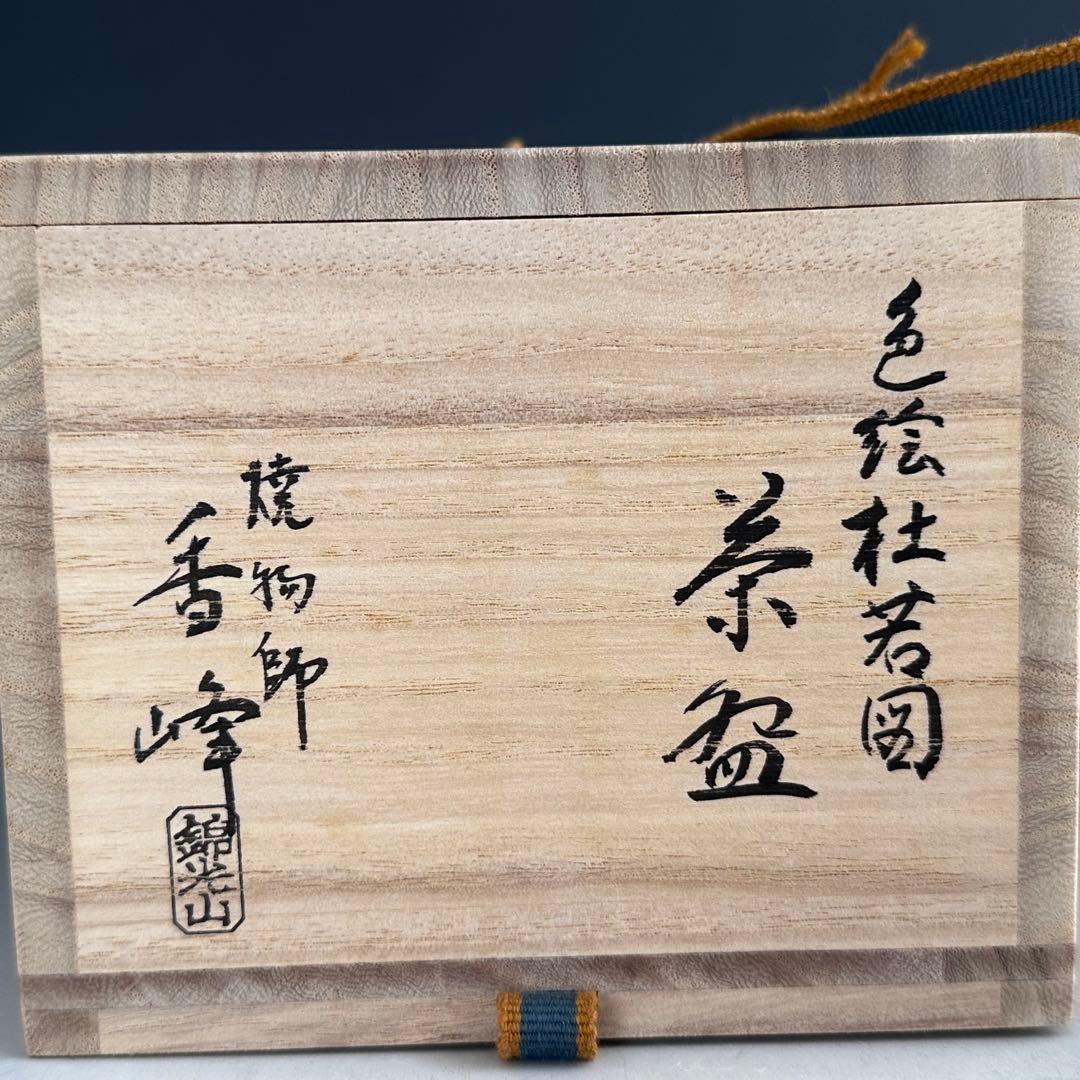 色絵杜若図
茶盌
焼物師
香峰
錦光山